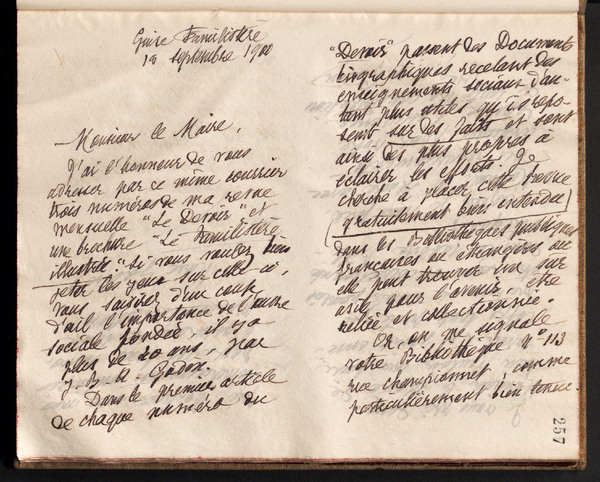 Guise Familistère
18 septembre 1900
Monsieur le Maire,
J'ai l'honneur de vous
adresser par ce même courrier
trois numéros de ma revue
mensuelle "Le Devoir" et
une brochure "Le Familistère
illustré". Si vous voulez bien
jeter les yeux sur celle-ci,
vous saisirez d'un coup
d'œil l'importance de l'œuvre
sociale fondée, il y a
plus de 20 ans, par
J. B. A. Godin.
Dans le premier article
de chaque numéro du
"Devoir" passent des Documents
biographiques recelant des
enseignements sociaux d'au-
tant plus utiles qu'ils repo-
sent sur des faits et sont
ainsi des plus propres à
éclairer les efforts. Je
cherche à placer cette revue
(gratuitement bien entendu)
dans les Bibliothèques publiques
françaises ou étrangères où
elle peut trouver un sûr
asile pour l'avenir, être
reliée et collectionnée.
Or, on me signale
votre Bibliothèque n° 113
rue championnet, comme
particulièrement bien tenue.
257